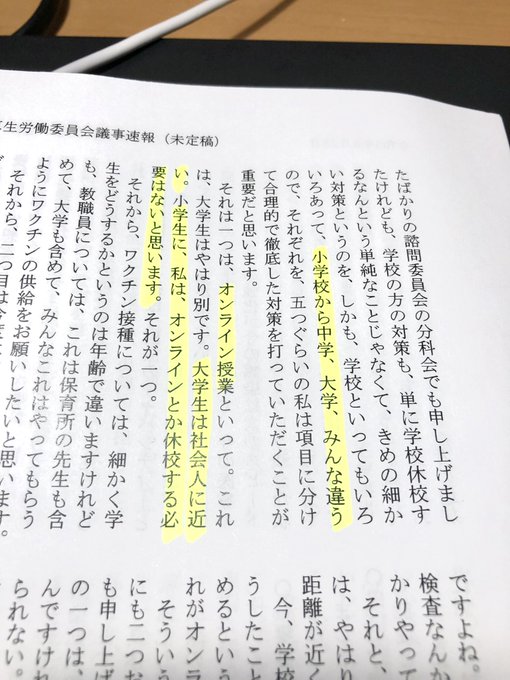 生労働委員会議事速報（未定稿）
たばかりの諮問委員会の分科会でも申し上げまし
たけれども、学校の方の対策も、単に学校休校す
るなんという単純なことじゃなくて、きめの細か
い対策というのを、しかも、学校といってもいろ
いろあって、小学校から中学、大学、みんな違う
ので、それぞれを、五つぐらいの私は項目に分け
て合理的で徹底した対策を打っていただくことが
重要だと思います。
それは一つは、オンライン授業といって。これ
は、大学生はやはり別です。大学生は社会人に近
い。小学生に、私は、オンラインとか休校する必
要はないと思います。それが一つ。
それから、ワクチン接種については、細かく学
生をどうするかというのは年齢で違いますけれど
も、教職員については、これは保育所の先生も含
めて、大学も含めて、みんなこれはやってもらう
ようにワクチンの供給をお願いしたいと思います。
それから、二つ目は今度
ですよね。
検査なんか
かりやって
それと、
は、やはり
距離が近く
今、学校
うしたこと
めるという
れがオンラ
そういう
にも二つお
も申し上げ
の一つは、
んですけれ
られない。